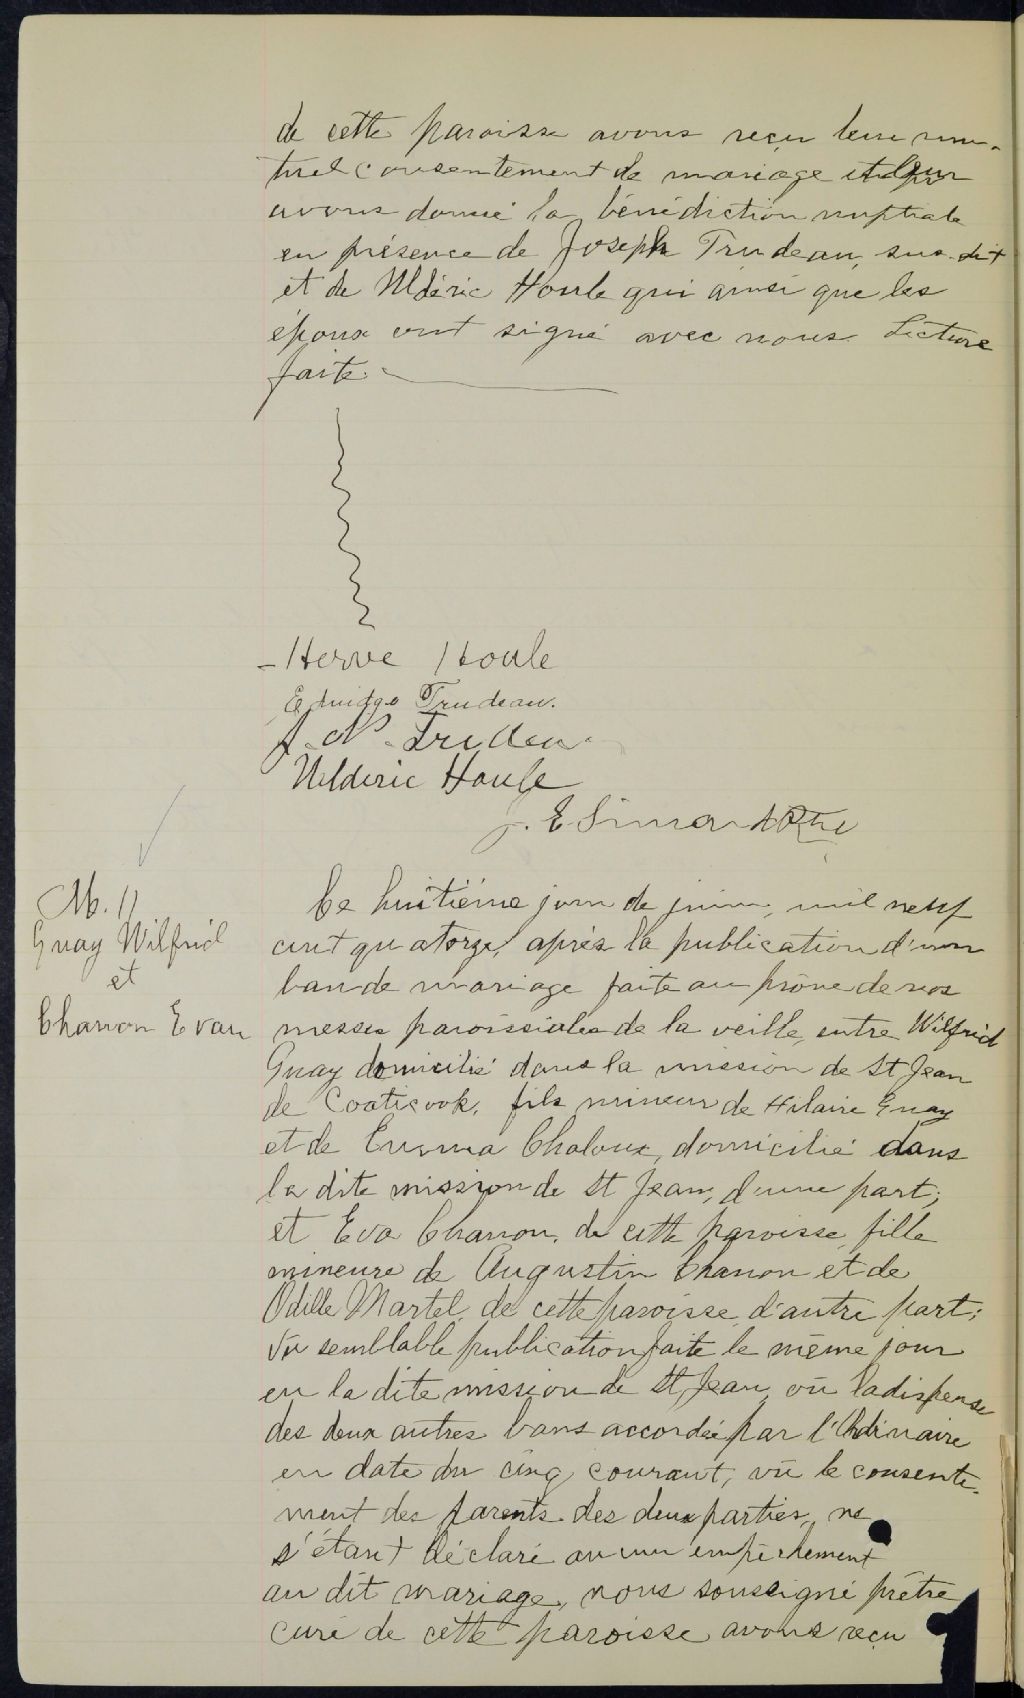 de cette paroisse avons reçu leur mu-
tuel consentement de mariage et leur
avons donné la bénédiction nuptiale
en présence de Joseph Trudeau, sus-dit
et de Uldéric Houle qui ainsi que les
époux ont signé avec nous. Lecture
faite.
Herve Houle
Edwidge Trudeau.
J. N. Trudeau
Uldéric Houle
J. E. Simard Ptre
M. 11
Guay Wilfrid
et
Charron Eva
Ce huitième jour de juin, mil neuf
cent quatorze, après la publication d'un
ban de mariage faite au prône de nos
messes paroissiales de la veille, entre Wilfrid
Guay domicilié dans la mission de St Jean
de Coaticook, fils mineur de Hilaire Guay
et de Emma Chaloux, domicilié dans
la dite mission de St Jean, d'une part;
et Eva Charron, de cette paroisse, fille
mineure de Augustin Charron et de
Odille Martel, de cette paroisse, d'autre part;
Vu semblable publication faite le même jour
en la dite mission de St Jean, vu la dispense
des deux autres bans accordée par l'Ordinaire
en date du cinq courant, vu le consente-
ment des parents des deux parties, ne
s'étant déclaré aucun empêchement
au dit mariage, nous soussigné prêtre
curé de cette paroisse avons reçu